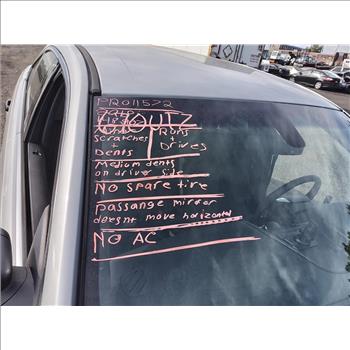 PR011572
COUTZ
Scratches
+
Dents
Runs
+
Drives
Medium dents
on driver side
No spare tire
passange mirror
doesnt move horizontal
NO AC